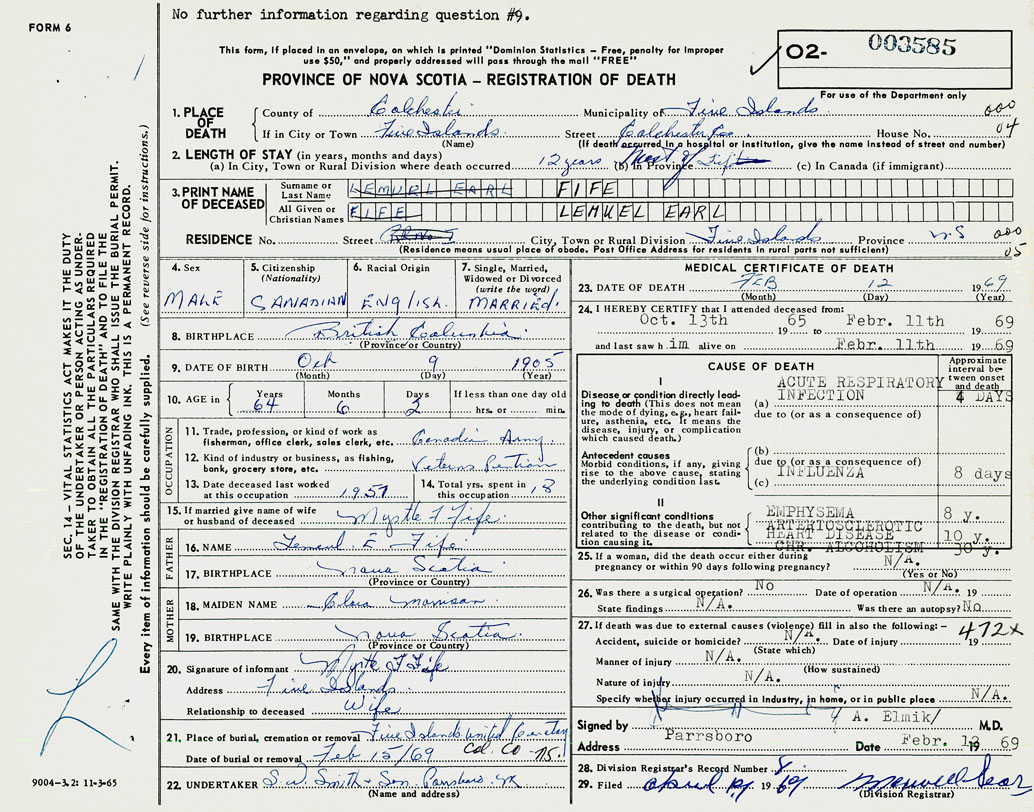 No further information regarding question #9.
FORM 6
This form, if placed in an envelope, on which is printed "Dominion Statistics – Free, penalty for improper
use $50," and properly addressed will pass through the mail "FREE"
PROVINCE OF NOVA SCOTIA – REGISTRATION OF DEATH
O2- 003585
For use of the Department only
1. PLACE OF DEATH
County of Colchester Municipality of Five Islands 000
If in City or Town Five Islands Street Colchester Co. House No. 04
(Name) (If death occurred in a hospital or institution, give the name instead of street and number)
2. LENGTH OF STAY (in years, months and days)
(a) In City, Town or Rural Division where death occurred 12 years (b) in Province Most of Life (c) In Canada (if immigrant)
3. PRINT NAME OF DECEASED
Surname or Last Name LEMUEL EARL FIFE
All Given or Christian Names FIFE LEMUEL EARL
RESIDENCE No. Street City, Town or Rural Division Five Islands Province N S 000
(Residence means usual place of abode. Post Office Address for residents in rural parts not sufficient) 05
4. Sex MALE
5. Citizenship (Nationality) CANADIAN
6. Racial Origin ENGLISH.
7. Single, Married, Widowed or Divorced (write the word) MARRIED.
8. BIRTHPLACE British Columbia
(Province or Country)
9. DATE OF BIRTH Oct 9 1905
(Month) (Day) (Year)
10. AGE in Years Months Days If less than one day old
64 6 2 hrs. or min.
OCCUPATION
11. Trade, profession, or kind of work as
fisherman, office clerk, sales clerk, etc. Canadian Army
12. Kind of industry or business, as fishing,
bank, grocery store, etc. Veterns Pention
13. Date deceased last worked
at this occupation 1957
14. Total yrs. spent in
this occupation 18
15. If married give name of wife
or husband of deceased Myrtle F Fife.
FATHER
16. NAME Lemuel E Fife.
17. BIRTHPLACE Nova Scotia
(Province or Country)
MOTHER
18. MAIDEN NAME Clara Morrison
19. BIRTHPLACE Nova Scotia
(Province or Country)
20. Signature of informant Myrtle F Fife
Address Five Islands
Relationship to deceased Wife
21. Place of burial, cremation or removal Five Islands United Cemetery
Col. Co NS.
Date of burial or removal Feb 15/69
22. UNDERTAKER S.W. Smith & Son Parrsboro NS
(Name and address)
MEDICAL CERTIFICATE OF DEATH
23. DATE OF DEATH FEB 12 1969
(Month) (Day) (Year)
24. I HEREBY CERTIFY that I attended deceased from:
Oct. 13th 1965 to Febr. 11th 1969
and last saw h im alive on Febr. 11th 1969
CAUSE OF DEATH
Approximate interval between onset and death
I
Disease or condition directly leading to death (This does not mean
the mode of dying, e.g., heart failure, asthenia, etc. It means the
disease, injury, or complication
which caused death.)
(a) ACUTE RESPIRATORY INFECTION 4 DAYS
due to (or as a consequence of)
Antecedent causes
Morbid conditions, if any, giving
rise to the above cause, stating
the underlying condition last.
(b)
due to (or as a consequence of)
(c) INFLUENZA 8 days
II
Other significant conditions
contributing to the death, but not
related to the disease or condition causing it.
EMPHYSEMA 8 y.
ARTERIOSCLEROTIC
HEART DISEASE 10 y.
CHR. ALCOHOLISM 30 y.
25. If a woman, did the death occur either during
pregnancy or within 90 days following pregnancy? N/A.
(Yes or No)
26. Was there a surgical operation? No Date of operation N/A. 19
State findings N/A. Was there an autopsy? No
27. If death was due to external causes (violence) fill in also the following:–
472x
Accident, suicide or homicide? N/A. Date of injury 19
(State which)
Manner of injury N/A.
(How sustained)
Nature of injury N/A.
Specify whether injury occurred in Industry, in home, or in public place N/A.
Signed by A. Elmik/ M.D.
Address Parrsboro Date Febr. 12 1969
28. Division Registrar's Record Number 8
29. Filed April 1969
(Division Registrar)
SEC. 14 – VITAL STATISTICS ACT MAKES IT THE DUTY
OF THE UNDERTAKER OR PERSON ACTING AS UNDER-
TAKER TO OBTAIN ALL THE PARTICULARS REQUIRED
IN THE "REGISTRATION OF DEATH" AND TO FILE THE
SAME WITH THE DIVISION REGISTRAR WHO SHALL ISSUE THE BURIAL PERMIT.
WRITE PLAINLY WITH UNFADING INK. THIS IS A PERMANENT RECORD.
Every item of information should be carefully supplied. (See reverse side for instructions.)
9004-3.2: 11-3-65